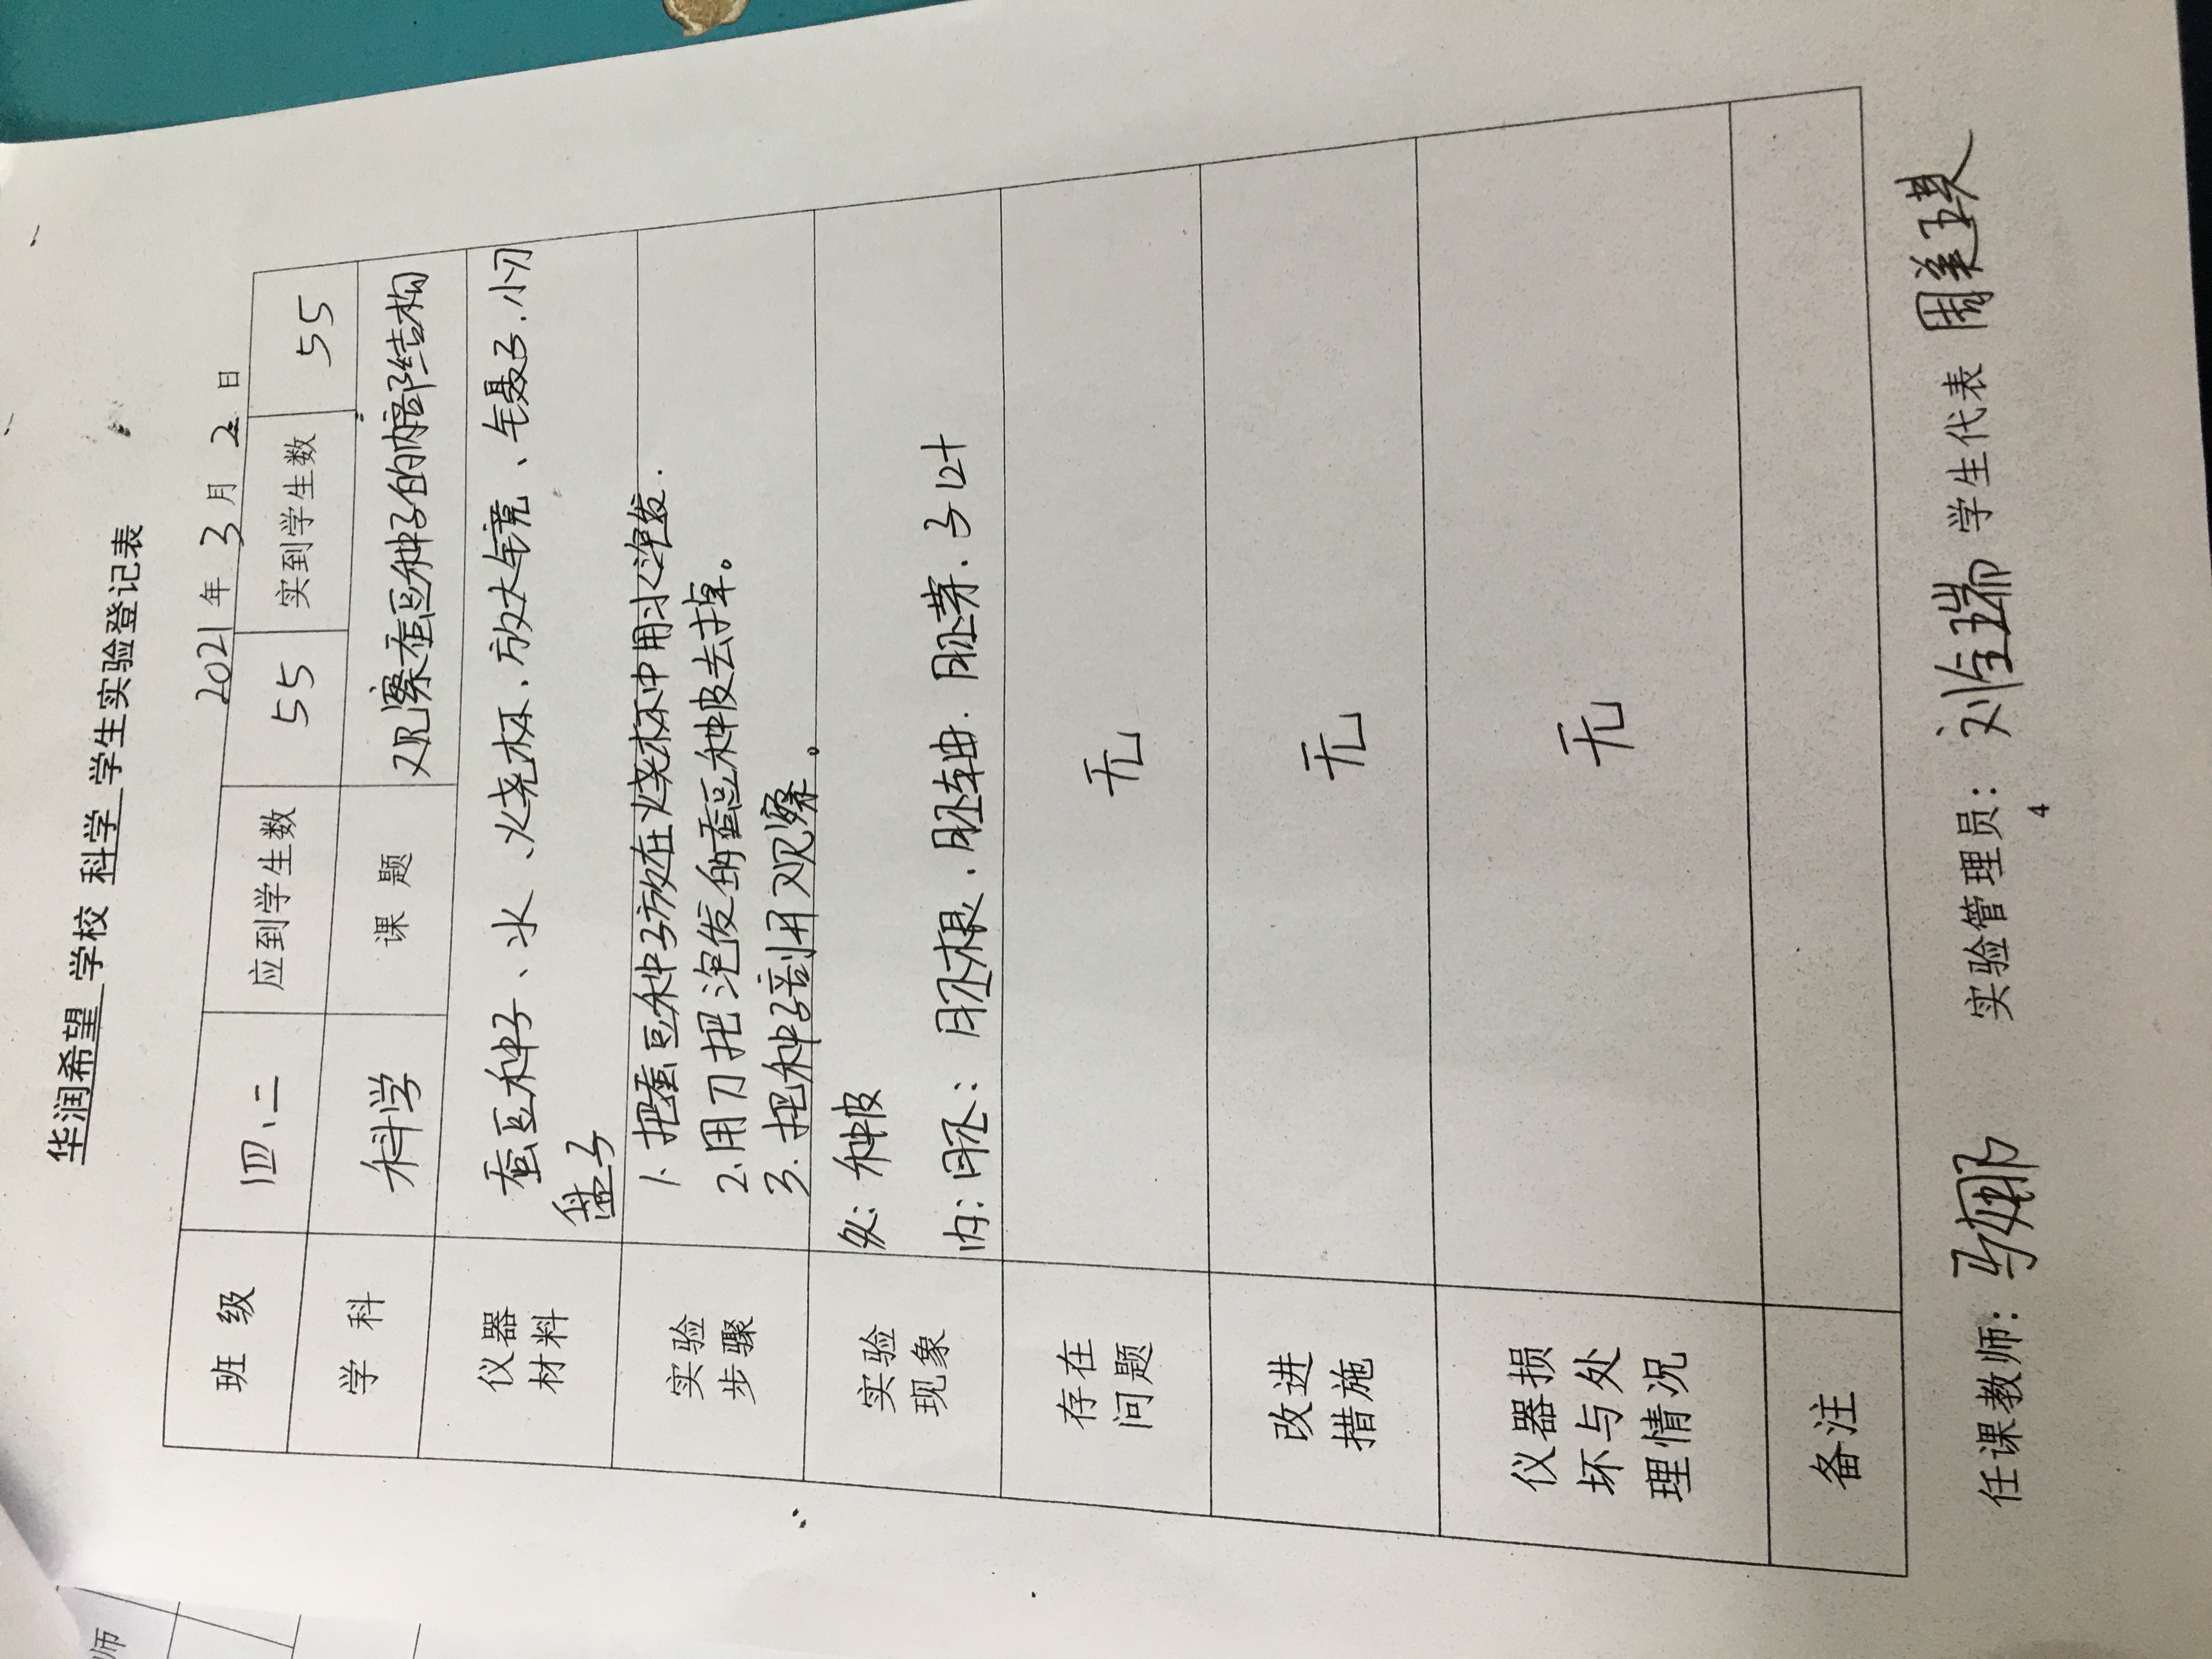 华润希望 学校 科学 学生实验登记表
2021年 3月 2日
班 级 四、二 应到学生数 55 实到学生数 55
学 科 科学 课 题 观察蚕豆种子的内部结构
仪器材料 蚕豆种子、水、烧杯、放大镜、镊子、小刀
盘子
实验步骤 1. 把蚕豆种子放在烧杯中用水泡发.
2.用刀把泡发的蚕豆种皮去掉。
3. 把种子剖开观察。
实验现象 外: 种皮
内: 胚: 胚根.胚轴.胚芽.子叶
存在问题 无
改进措施 无
仪器损坏与处理情况 无
备注
任课教师: 马娜 实验管理员: 刘 瑞 学生代表 周美琪
4
师